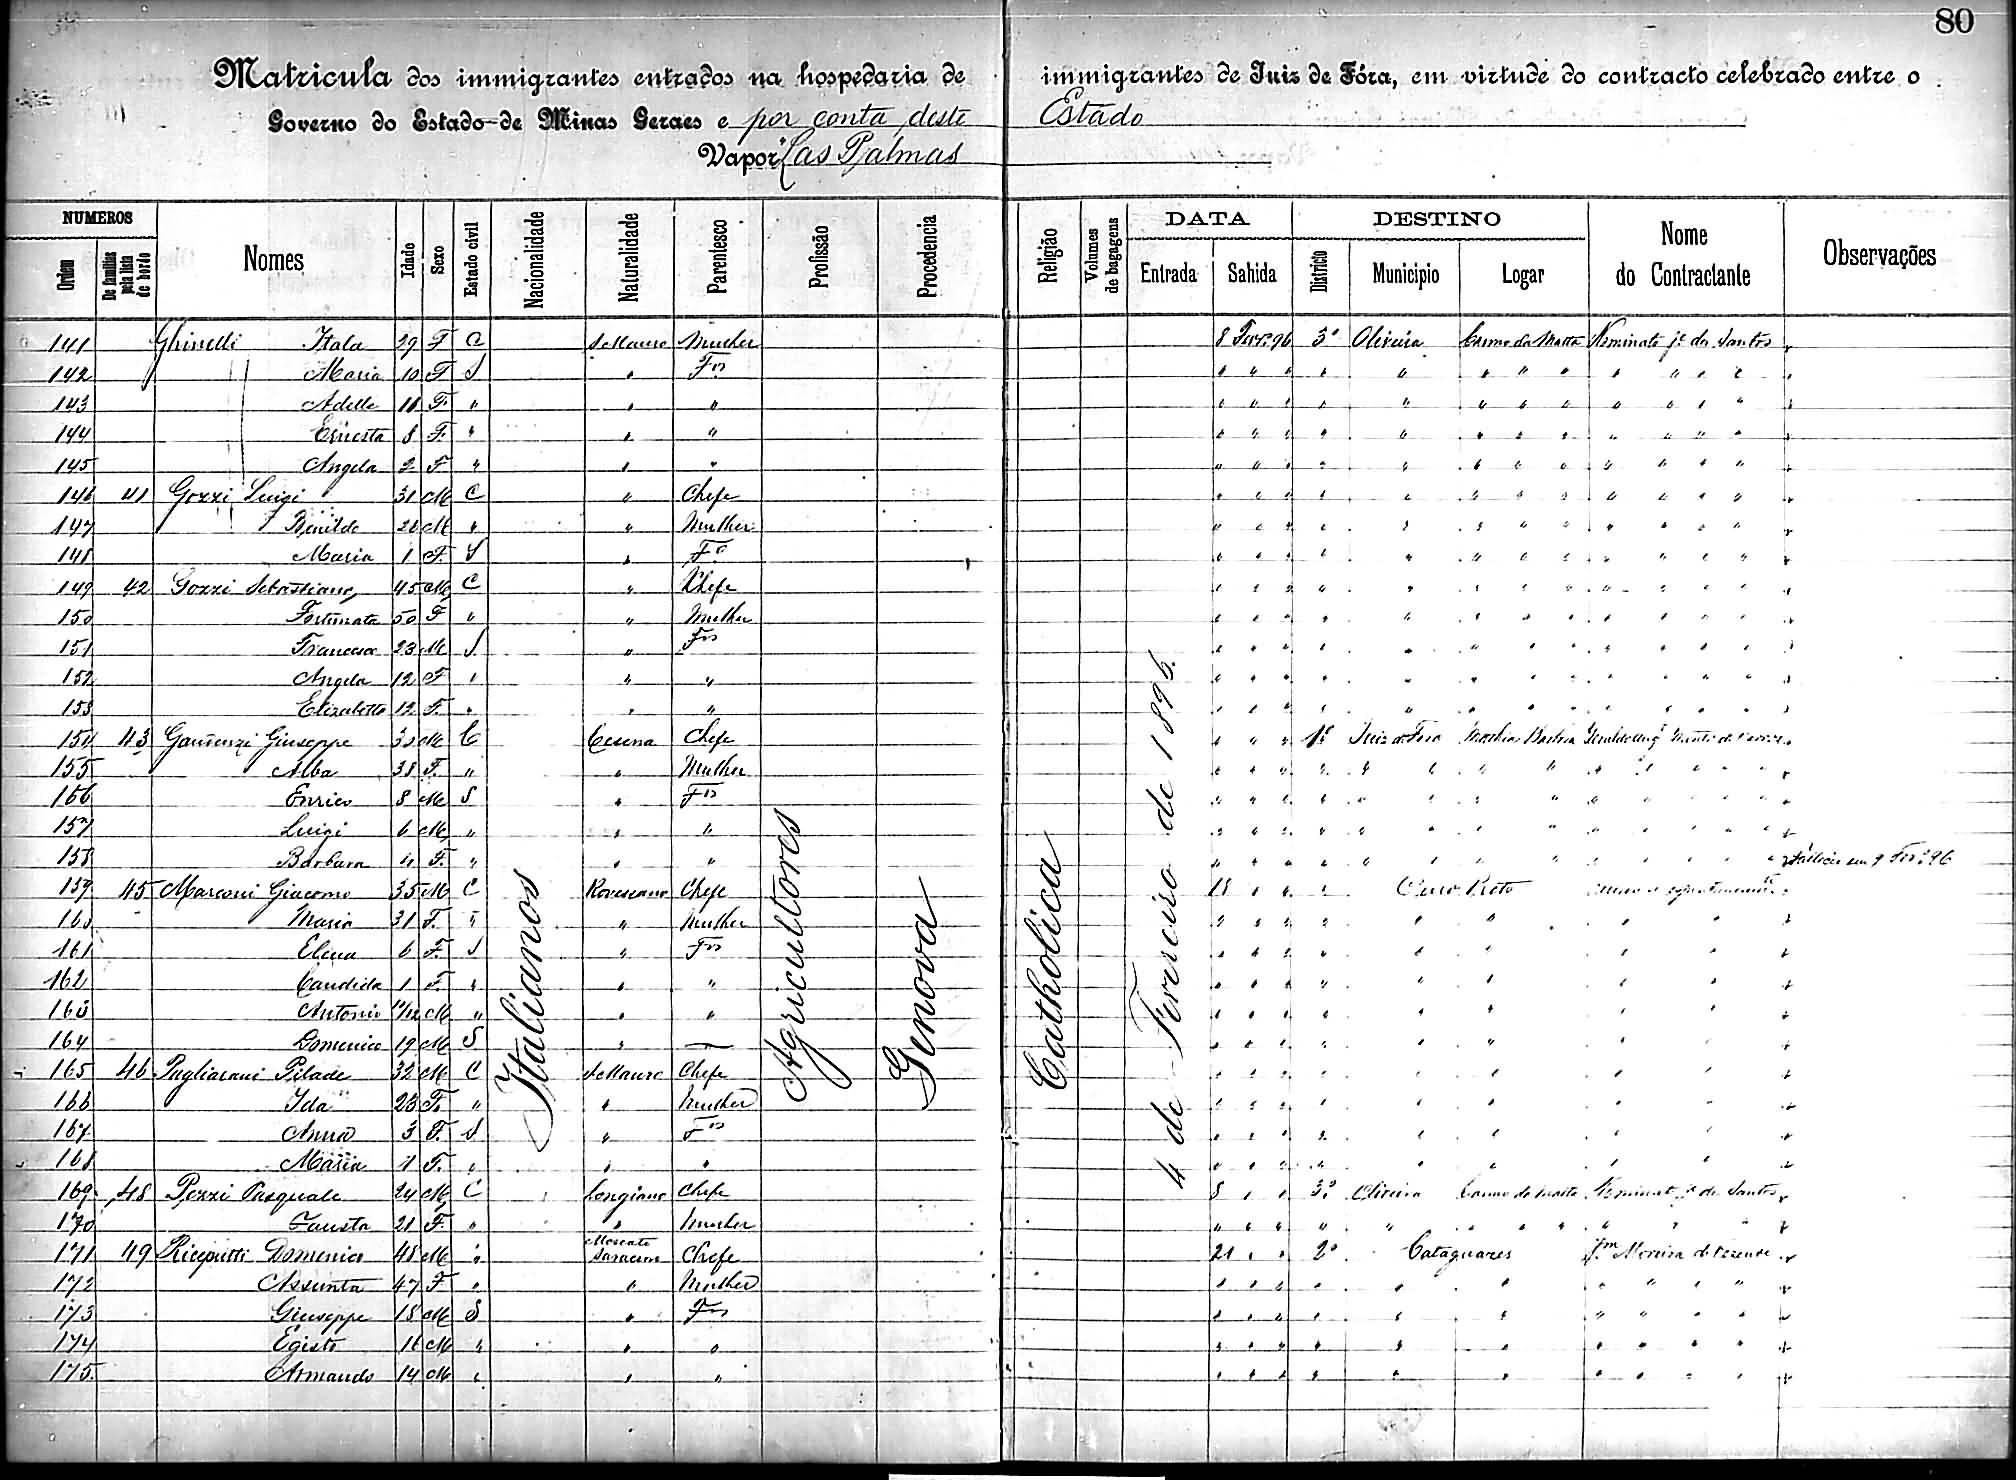 80
Matricula dos immigrantes entrados na hospedaria de immigrantes de Juiz de Fóra, em virtude do contracto celebrado entre o
Governo do Estado de Minas Geraes e por conta deste Estado
Vapor Las Palmas
NUMEROS Nomes Idade Sexo Estado civil Nacionalidade Naturalidade Parentesco Profissão Procedencia Religião Volumes de bagagens DATA DESTINO Nome do Contractante Observações
Ordem De familias pela lista de bordo Entrada Sahida Districto Municipio Logar
Italianos
Agricultores
Genova
Catholica
4 de Fevreiro de 1896.
141 Ghinelli Itala 29 F C S Mauro Mulher 8 Fevr. 96 3º Oliveira Carmo da Matta Neminato Je. dos Santos
142 Maria 10 F S " Fos " " " " " " " " " " " "
143 Adelle 11 F. " " " " " " " " " " " " " " "
144 Ernesta 8 F. " " " " " " " " " " " " " " "
145 Angela 2 F " " " " " " " " " " " " " " "
146 41 Gozzi Luigi 31 M C " Chefe " " " " " " " " " " " "
147 Benilde 21 M " " Mulher " " " " " " " " " " " "
148 Maria 1 F. S " Fa " " " " " " " " " " " "
149 42 Gozzi Sebastiano 45 M C " Chefe " " " " " " " " " " " "
150 Fortunata 50 F " " Mulher " " " " " " " " " " " "
151 Francesco 23 M S " Fos " " " " " " " " " " " "
152 Angela 12 F " " " " " " " " " " " " " " "
153 Elizabetta 12 F. " " " " " " " " " " " " " " "
154 43 Giuseppe M C Cesena Chefe " " " 1º Juiz de Fora Mathias Barbosa
155 Alba 38 F. " " Mulher " " " " " " " " " " " " "
156 Enrico 8 M S " Fos " " " " " " " " " " " " "
157 Luigi 6 M " " " " " " " " " " " " " " " "
158 Barbara 4 F. " " " " " " " " " " " " " " " " Falleceu em 9 Fevr. 96
159 45 Marconi Giacomo 35 M C Chefe 18 " " " Ouro Preto
160 Maria 31 F. " " Mulher " " " " " " " "
161 Elena 6 F. S " Fos " " " " " " " "
162 Candida 1 F. " " " " " " " " " " "
163 Antonio 11/12 M " " " " " " " " " " "
164 Domenico 19 M S " — " " " " " " " "
165 46 Pagliarani Pilade 32 M C S Mauro Chefe " " " " " " " "
166 Ida 23 F. " " Mulher " " " " " " " "
167 Anna 3 F. S " Fos " " " " " " " "
168 Maria 1 F. " " " " " " " " " " "
169 48 Pezzi Pasquale 24 M C Longiano Chefe 8 " " 3º Oliveira Carmo da Matta Neminato Je. dos Santos
170 Fausta 21 F. " " Mulher " " " " " " " " " " "
171 49 Riceputti Domenico 48 M " Mercato Saraceno Chefe 21 " " 2º Cataguazes Jm Moreira de Rezende
172 Assunta 47 F " " Mulher " " " " " " " " " "
173 Giuseppe 18 M S " Fos " " " " " " " " " "
174 Egisto 16 M " " " " " " " " " " " " "
175 Armando 14 M " " " " " " " " " " " " "